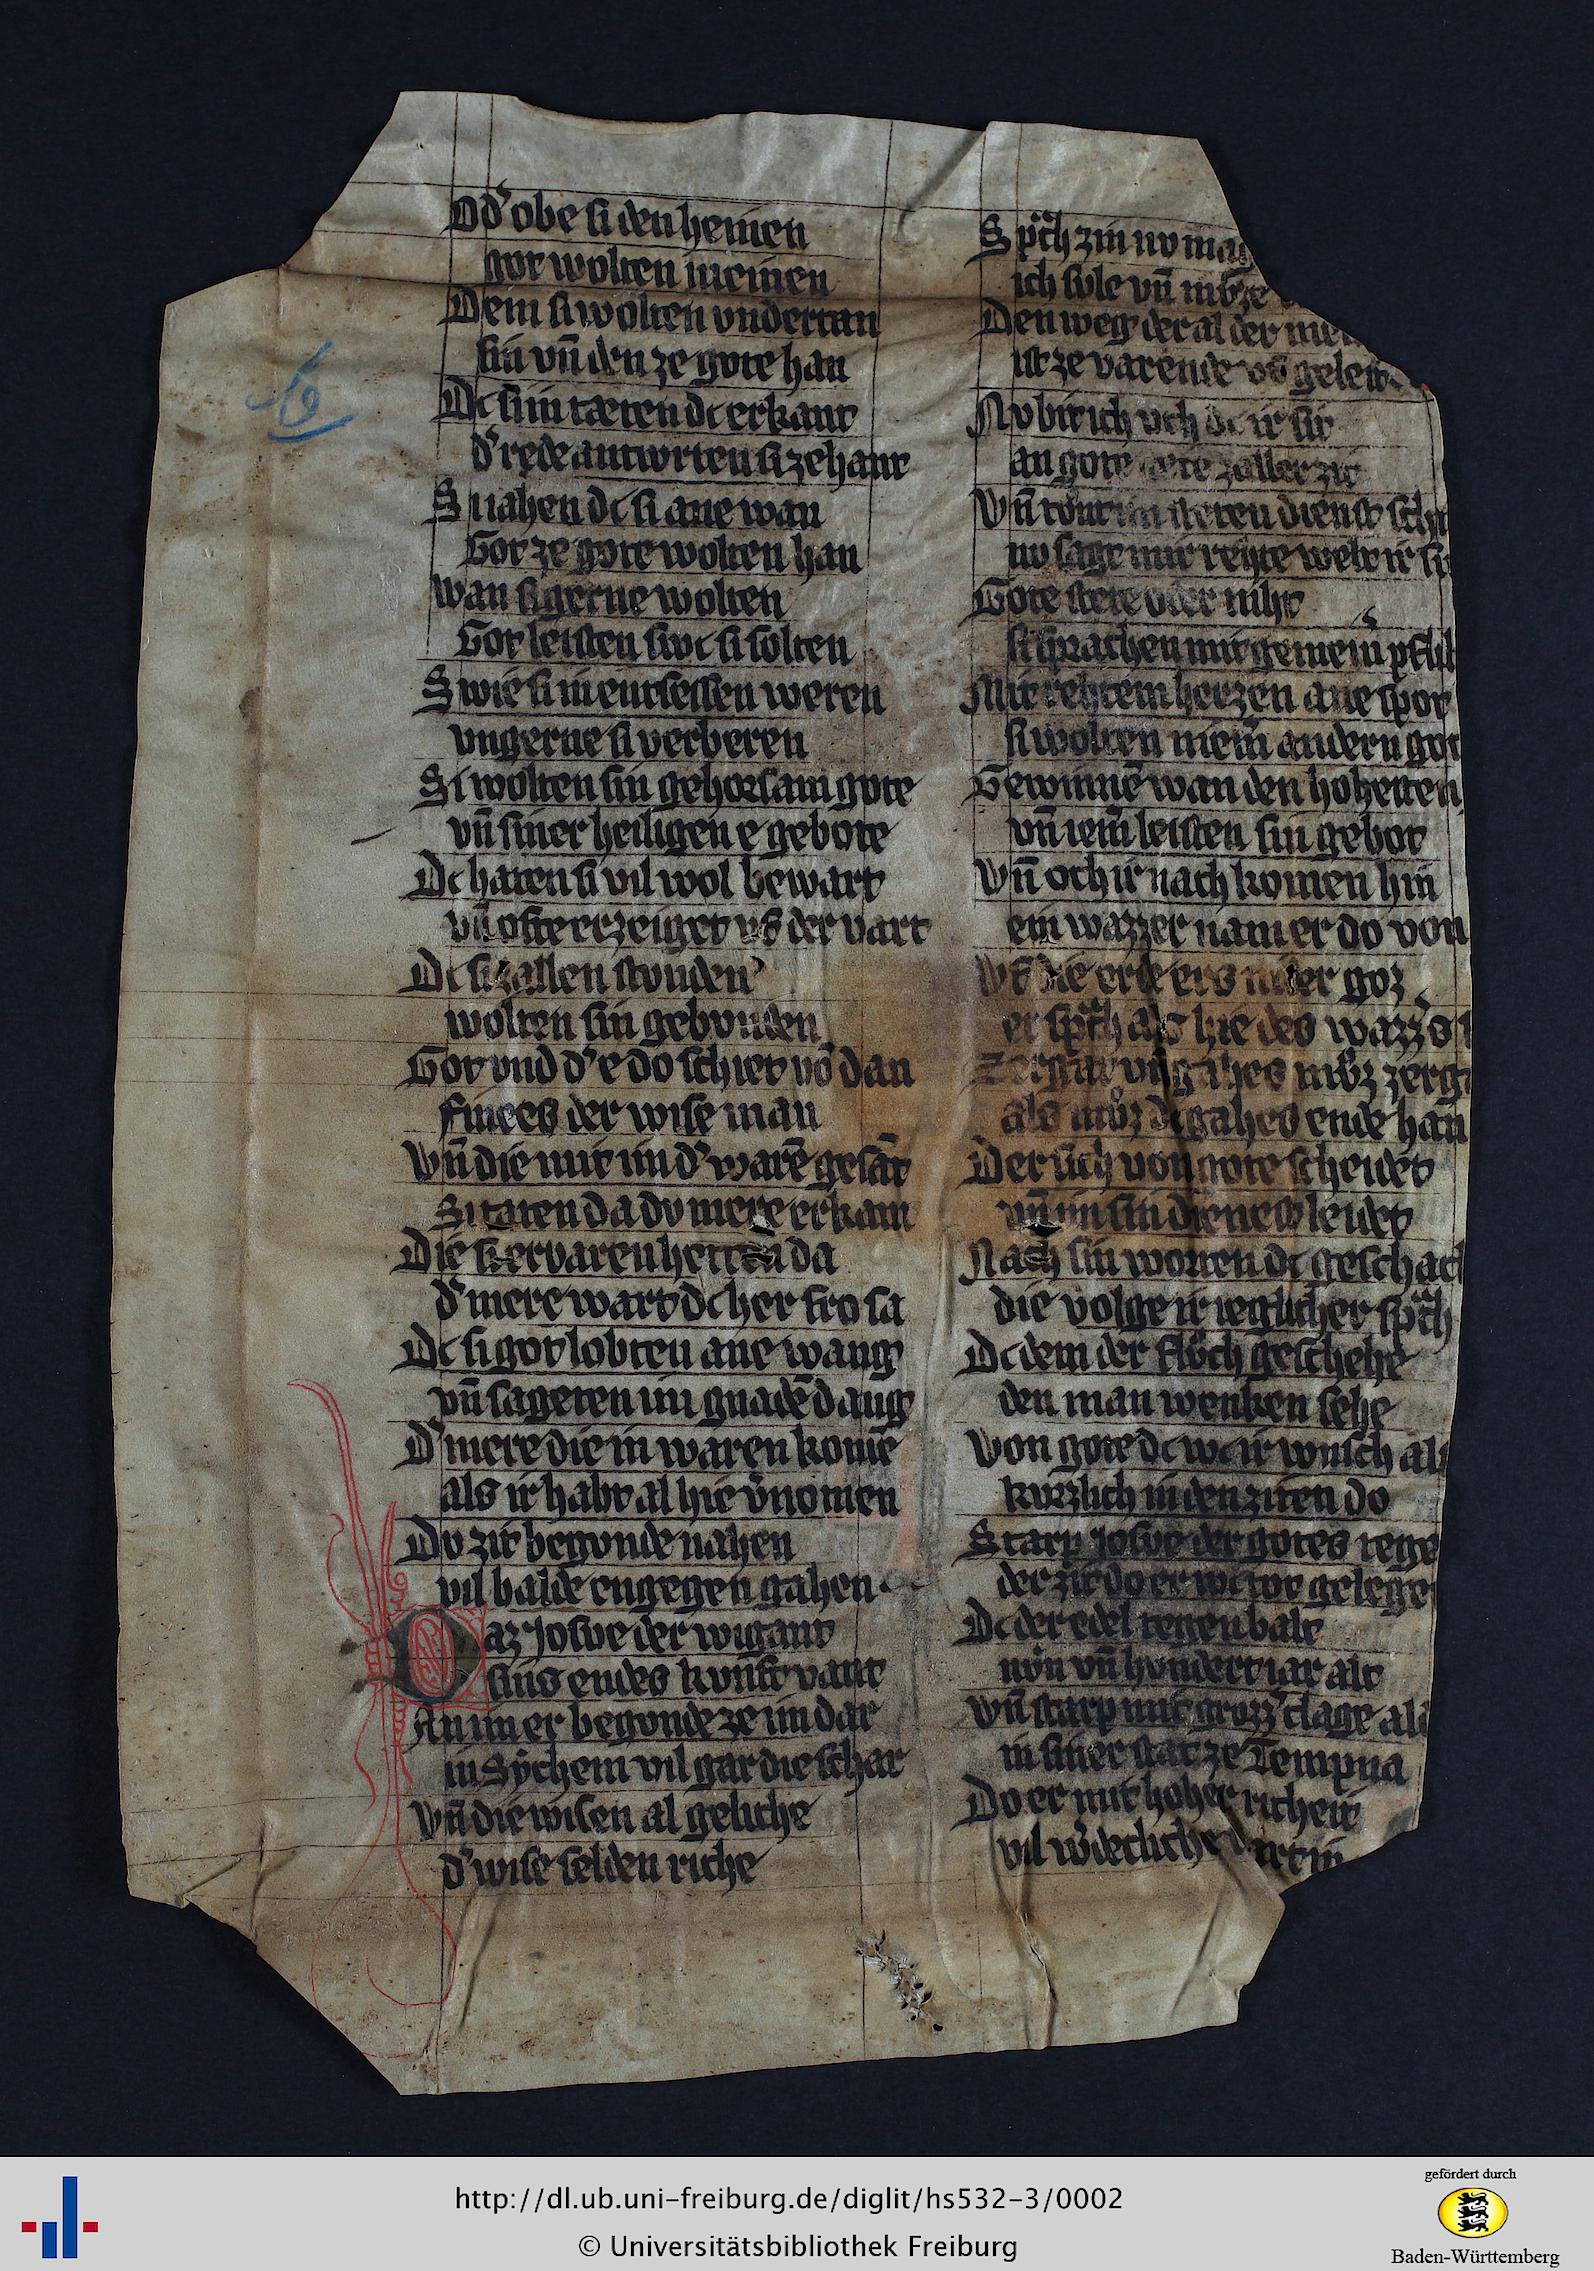 Od' obe si den heinen
got wolten meinen
Dem si wolten vndertan
sin vn̄ den ze gote han
Dc si in tæten dc erkant
d' rede antwrten si zehant
Si iahen dc si ane wan
Got ze gote wolten han
wan si gerne wolten
Got leisten swc si solten
Swie si in entsessen weren
vngerne si verberen
Si wolten sin gehorsam gote
vn̄ siner heiligen e gebote
Dc haten si vil wol bewart
vn̄ ofte erzeiget vf der vart
Dc si zallen stonden
wolten sin gebvnden
Got vnd d' e do schiet vō dan
finees der wise man
Vn̄ die mit im d' warē gesāt
Si taten da dv mere erkant
Die si ervaren hetten da
d' mere wart dc her fro sa
Dc si got lobten ane wang
vn̄ sageten im gnadē dang
D' mere die in waren komē
als ir habt al hie v̄nomen
Dv zit begonde nahen
vil balde engegen gahen
Daz Josve der wigant
sins endes kvnft vant
An im er begonde ze im dar
in Sychem vil gar die schar
Vn̄ die wisen al geliche
d' wise selden riche
Spͣch zin nv mag
ich sole vn̄ mv̊ze
Den weg der al der
ist ze varende vf geleit
Nv bit ich vch dc ir sit
an gote stete zaller zit
Vn̄ tv̊nt im steten dienst
nv saget mir rehte welt ir
Gote stete oder niht
si sprachen mit gemeiner
Mit rehtem herzen ane spot
si wolten niem̄ andern got
Gewinnē wan den hohesten
vn̄ iem̄ leisten sin gebot
Vn̄ och ir nach komen hin
ein wazzer nam er do von
Vf die erde ers nider goz
er spͣch als hie des wazz's
Zergat vn̄ gahes mv̊z
als mv̊z dc gahes ende han
Der sich von gote scheidet
vn̄ im sin dienest leidet
Nach sin worten dc geschach
die volge ir ieglicher spͣch
Dc dem der flv̊ch geschehe
den man wenken sehe
Von gote dc wc ir wnsch
kvrzlich in den ziten do
Starp Josve der gotes
der zit do er wc
Dc der edel
vn̄ hvndert iar alt
Vn̄ starp mit grozz' clage
in siner stat ze Tempna
Do er mit hoher richeit
vil
6
http://dl.ub.uni-freiburg.de/diglit/hs532-3/0002
© Universitätsbibliothek Freiburg
gefördert durch
Baden-Württemberg